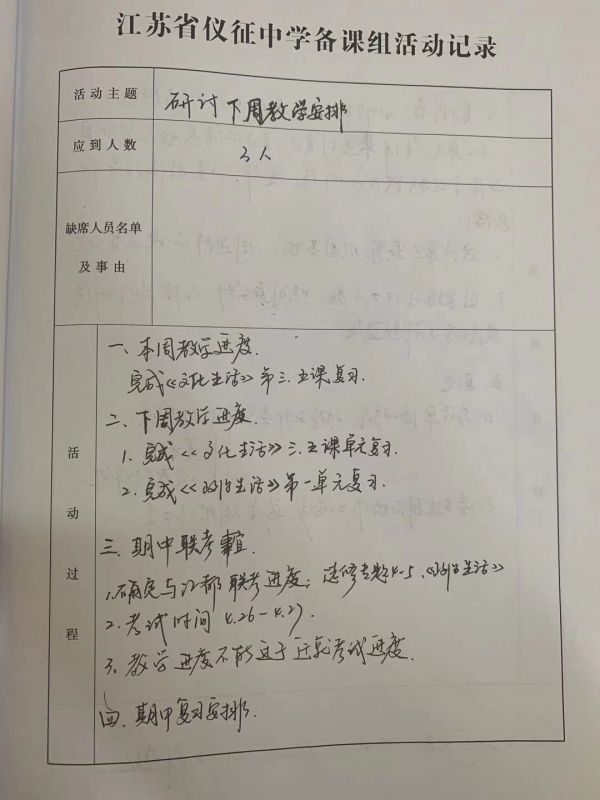 江苏省仪征中学备课组活动记录
活动主题
研讨下周教学安排
应到人数
3人
缺席人员名单
及事由
活动过程
一、本周教学进度.
完成《文化生活》第三.五课复习.
二、下周教学进度.
1. 完成《文化生活》三.五课单元复习.
2. 完成《政治生活》第一单元复习.
三、期中联考事宜.
1.确定与江都联考进度：选修专题4-5、《政治生活》
2.考试时间 4.26-4.29.
3、教学进度不能过于迁就考试进度.
四、期中复习安排.